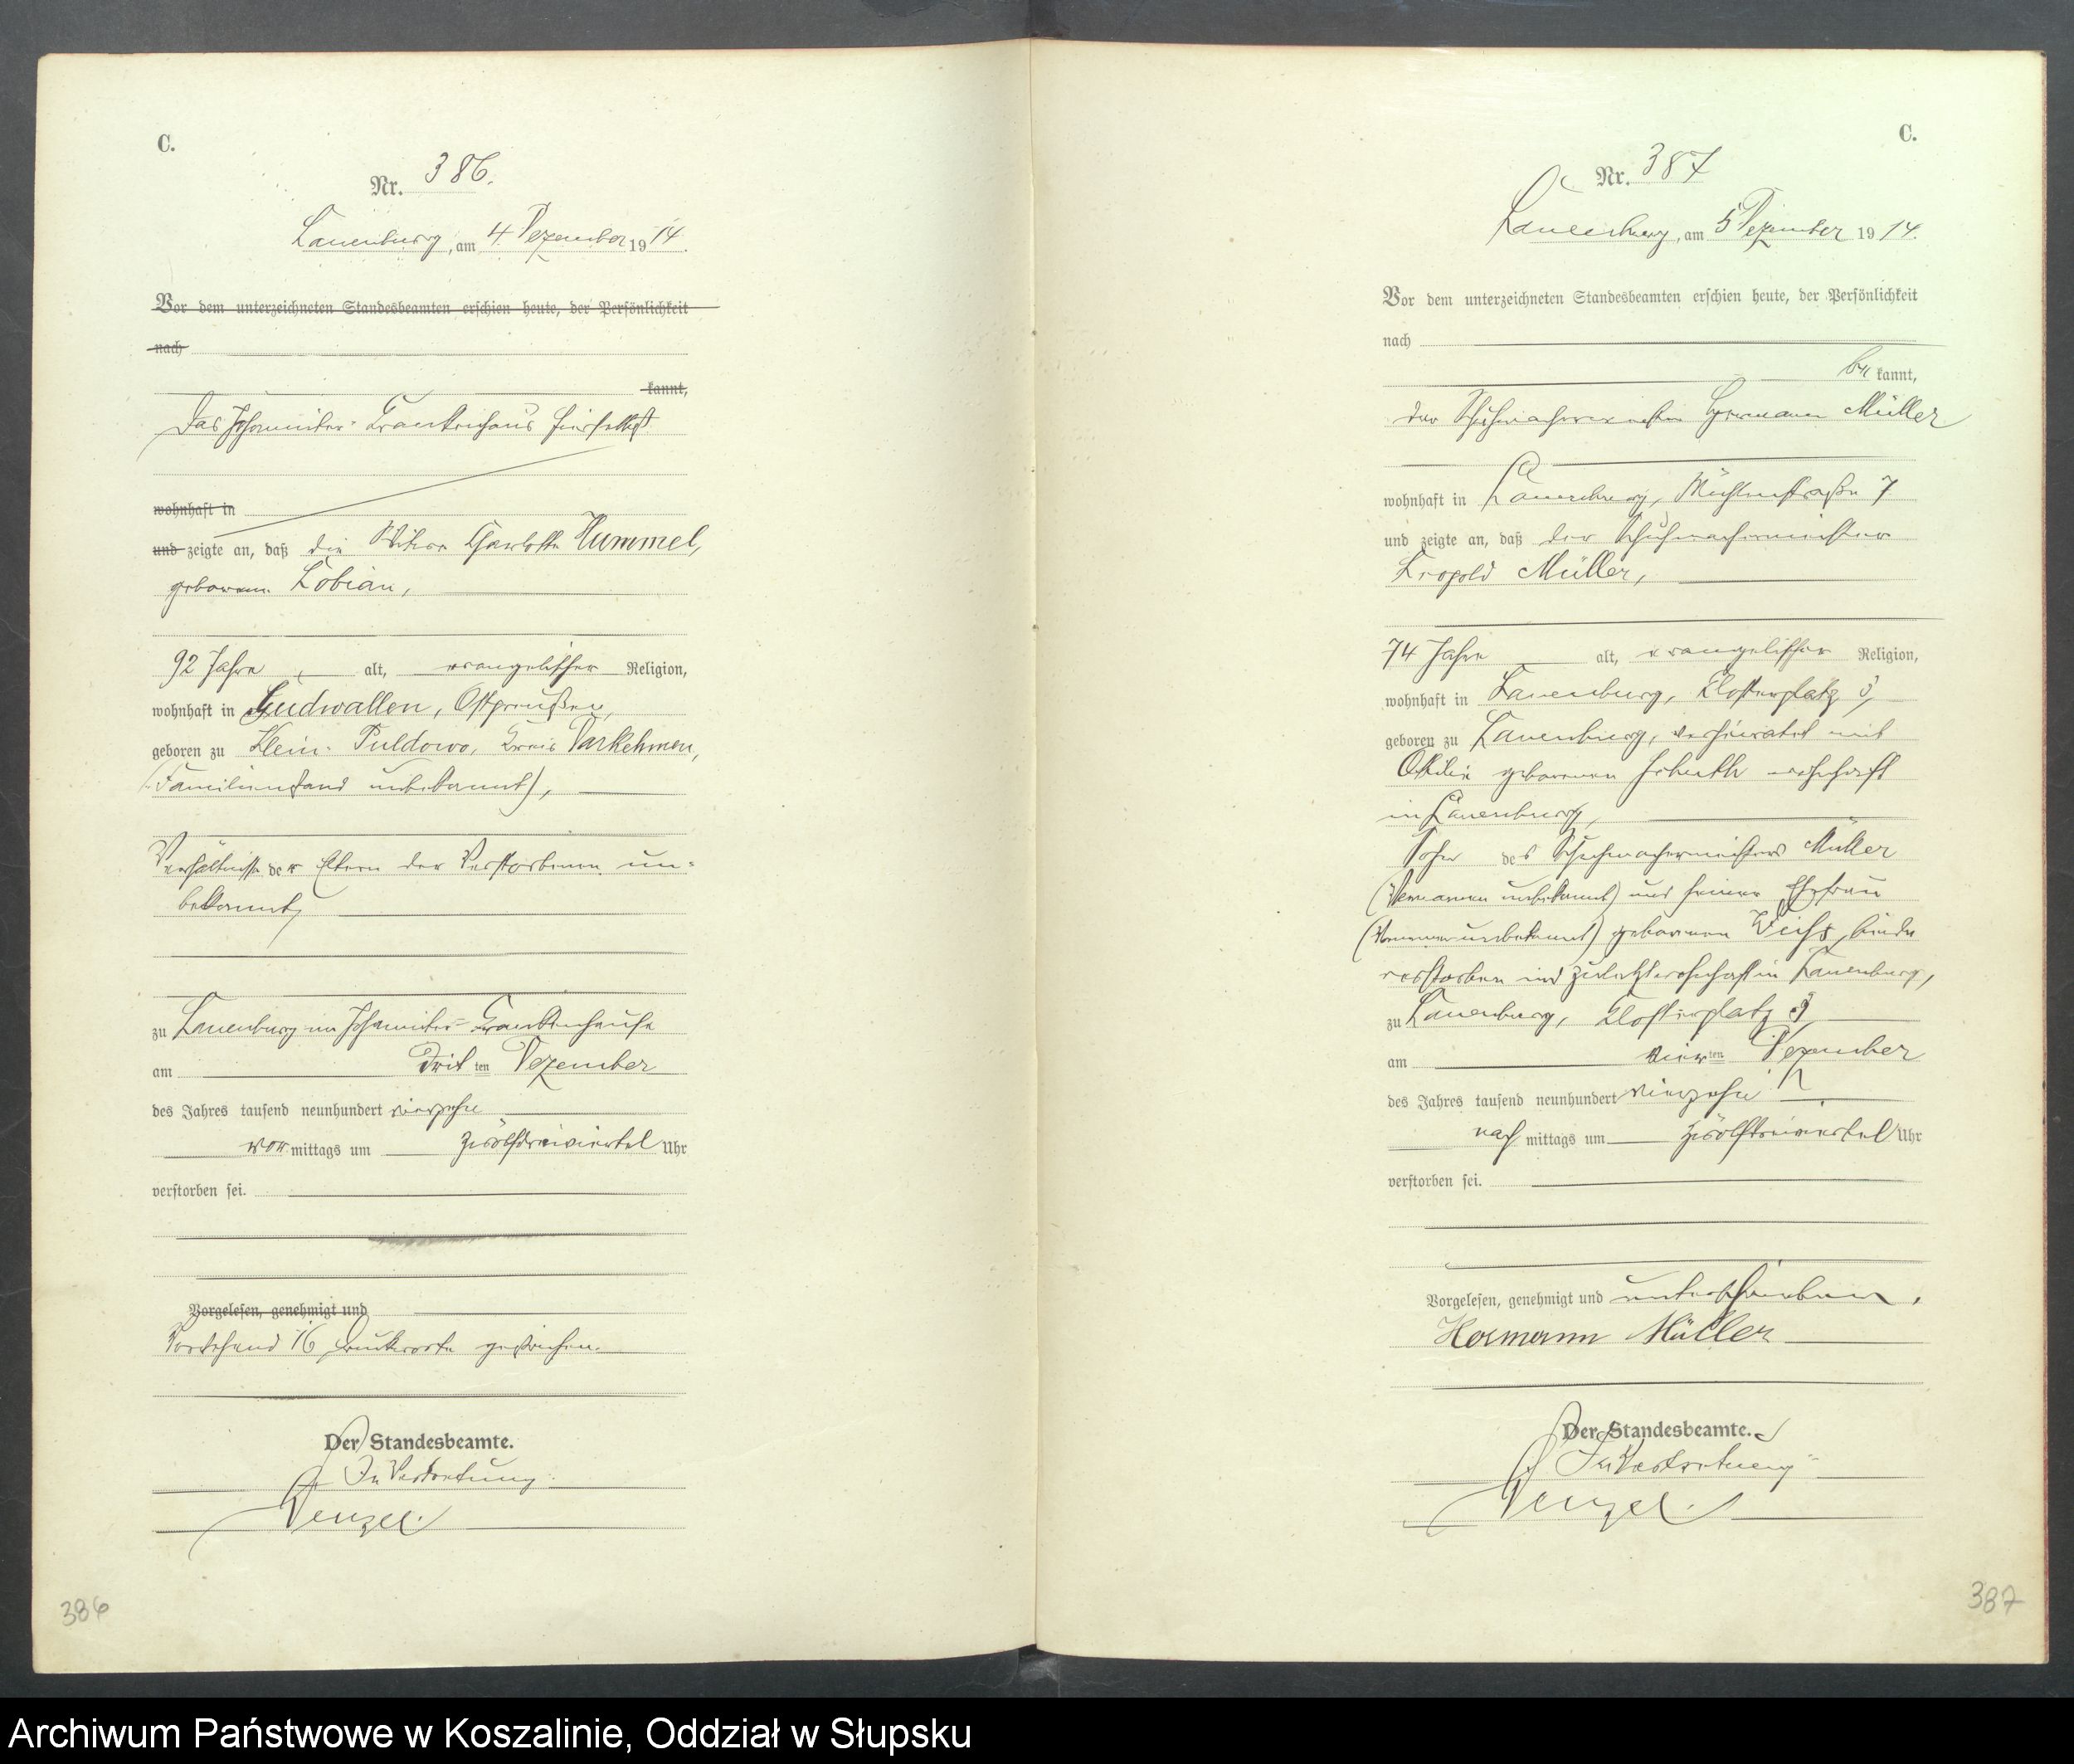 C.
Nr. 386.
Lauenburg, am 4. Dezember 1914.
Vor dem unterzeichneten Standesbeamten erschien heute, der Persönlichkeit
nach
kannt,
Das Johanniter-Krankenhaus hierselbst
wohnhaft in
und zeigte an, daß die Witwe Charlotte Hummel,
geborene Lobian,
92 Jahre alt, evangelischer Religion,
wohnhaft in Gudwallen, Ostpreußen,
geboren zu Klein-Puldowo, Kreis Darkehmen,
(Familienstand unbekannt),
Verhältnisse der Eltern der Verstorbenen un-
bekannt,
zu Lauenburg im Johanniter-Krankenhause
am dritten Dezember
des Jahres tausend neunhundert vierzehn
vormittags um zwölfdreiviertel Uhr
verstorben sei.
Vorgelesen, genehmigt und
Vorstehend 16 Druckworte gestrichen.
Der Standesbeamte.
In Vertretung.
Wenzel.
386
C.
Nr. 387
Lauenburg, am 5 Dezember 1914.
Vor dem unterzeichneten Standesbeamten erschien heute, der Persönlichkeit
nach
be kannt,
der Schuhmachermeister Hermann Müller
wohnhaft in Lauenburg, Mühlenstraße 7
und zeigte an, daß der Schuhmachermeister
Leopold Müller,
74 Jahre alt, evangelischer Religion,
wohnhaft in Lauenburg, Klosterplatz 3,
geboren zu Lauenburg, verheiratet mit
Ottilie geborenen wohnhaft
in Lauenburg,
Sohn des Schuhmachermeisters Müller
(Vornamen unbekannt) und seiner Ehefrau
(Vornamen unbekannt) geborenen Weiss, beide
verstorben und zuletzt wohnhaft in Lauenburg,
zu Lauenburg, Klosterplatz 3,
am vierten Dezember
des Jahres tausend neunhundert vierzehn
nachmittags um zwölfdreiviertel Uhr
verstorben sei.
Vorgelesen, genehmigt und unterschrieben.
Hermann Müller
Der Standesbeamte.
In Vertretung
Wenzel.
387
Archiwum Państwowe w Koszalinie, Oddział w Słupsku